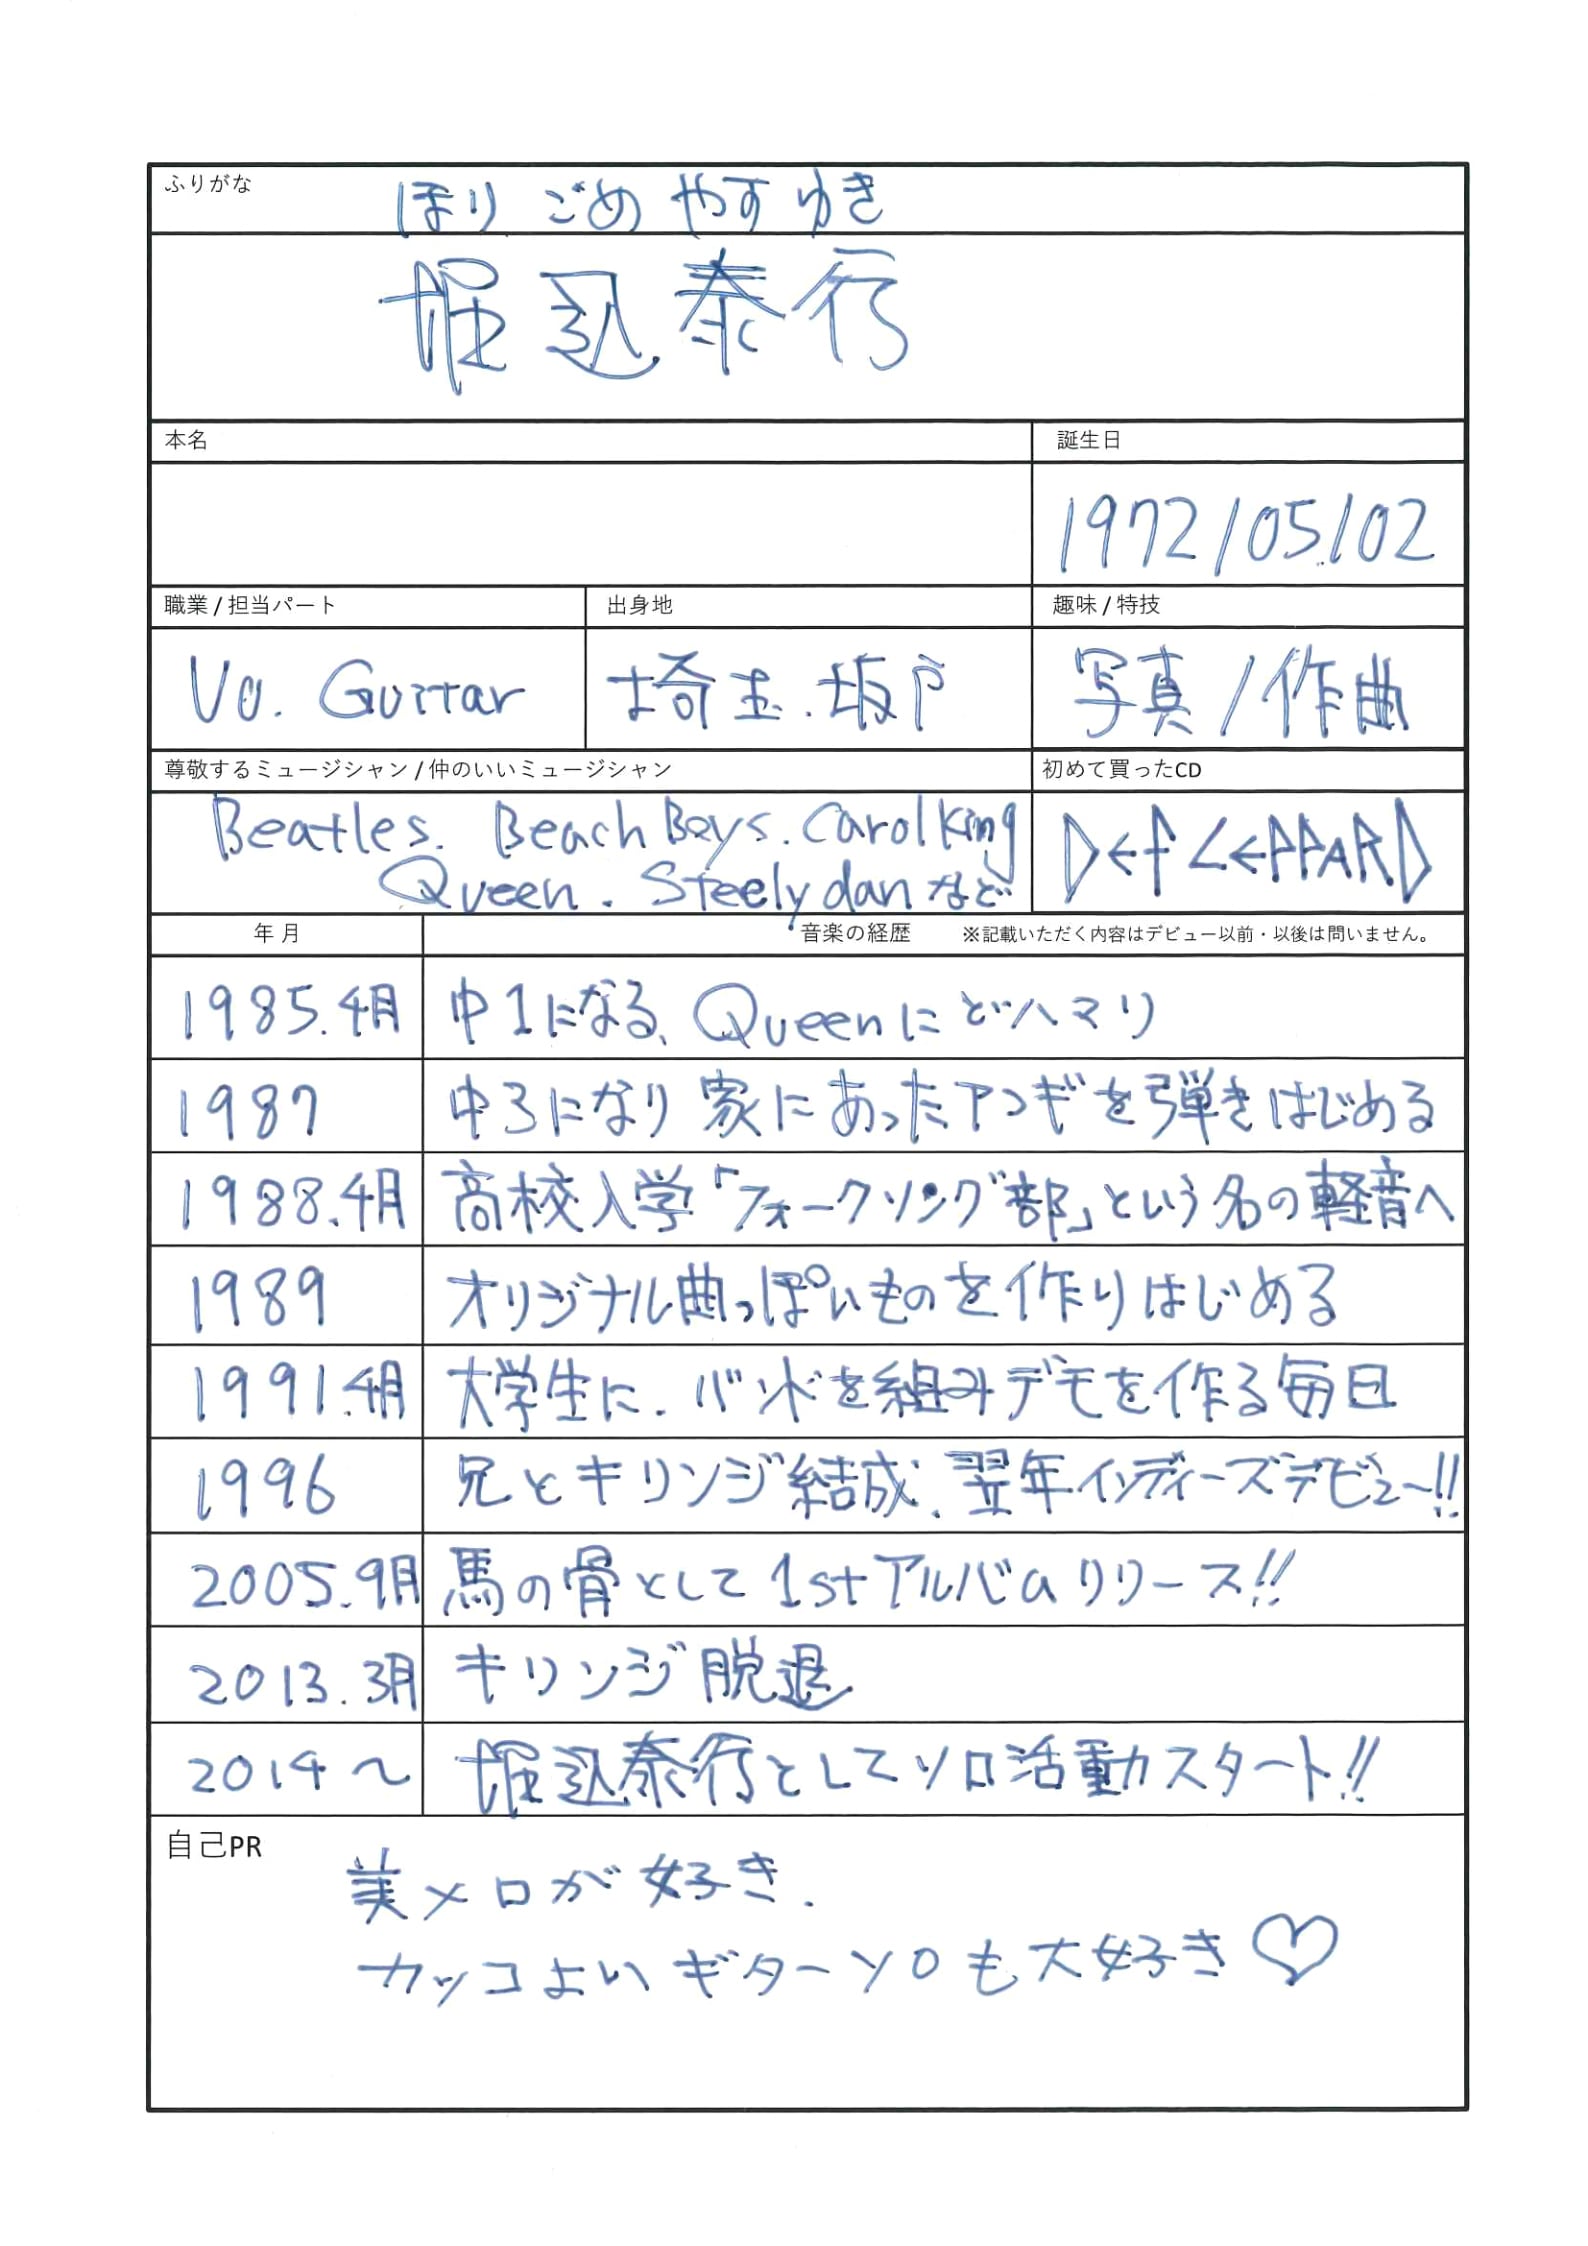 ふりがな
ほりごめ やすゆき
堀込泰行
本名
誕生日
1972/05/02
職業 / 担当パート
出身地
趣味 / 特技
Vo. Guitar
埼玉.坂戸
写真/作曲
尊敬するミュージシャン / 仲のいいミュージシャン
初めて買ったCD
Beatles. Beach Boys. Carol King
Queen. Steely dan など
DEF LEPPARD
年月
音楽の経歴 ※記載いただく内容はデビュー以前・以後は問いません。
1985.4月 中1になる、Queenにどハマリ
1987 中3になり 家にあったアコギを弾きはじめる
1988.4月 高校入学「フォークソング部」という名の軽音へ
1989 オリジナル曲っぽいものを作りはじめる
1991.4月 大学生に. バンドを組みデモを作る毎日
1996 兄とキリンジ結成. 翌年インディーズデビュ〜!!
2005.9月 馬の骨として1stアルバムリリース!!
2013.3月 キリンジ脱退
2014〜 堀込泰行としてソロ活動スタート!!
自己PR
美メロが好き.
カッコよいギターソロも大好き♡